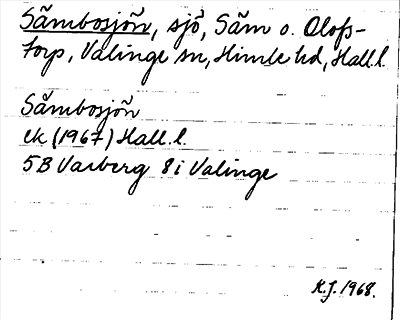 Såmbosjön, sjö, Såm o. Olofs-
torp, Valinge sn, Himle hd, Hall.l.
Såmbosjön
ek (1967) Hall.l.
5B Varberg 8i Valinge
K.J. 1968.